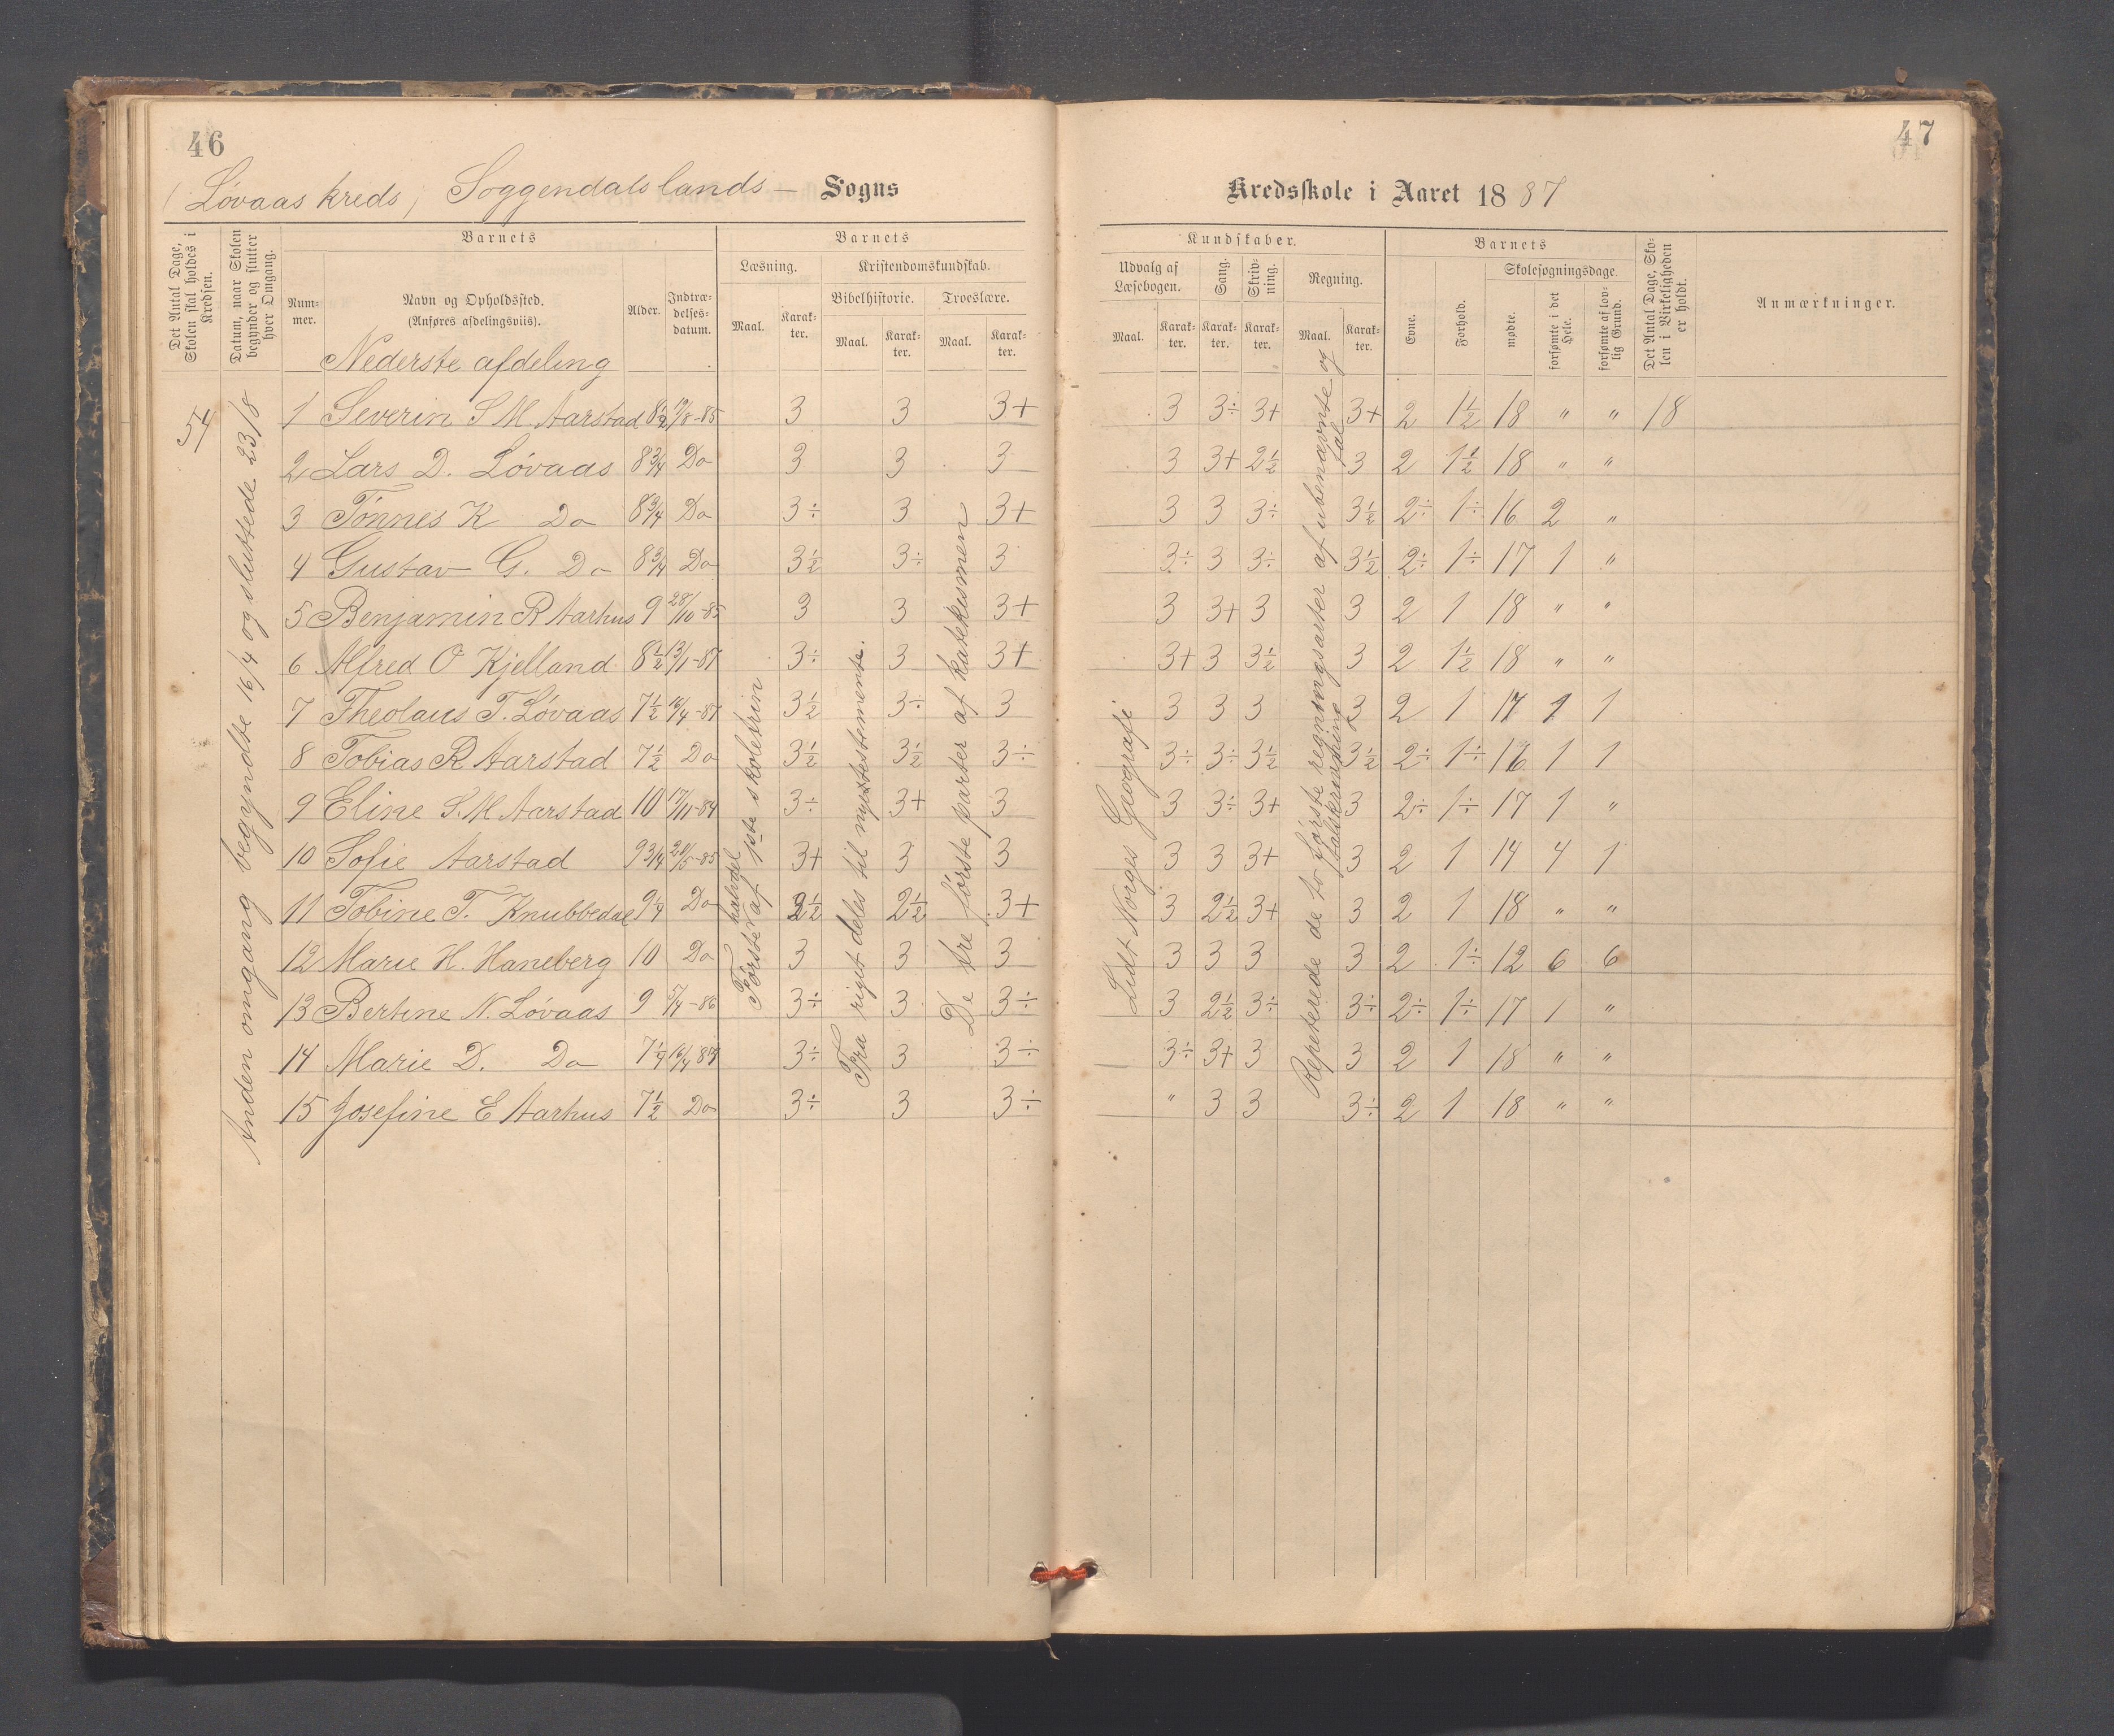 46
(Løvaas kreds) Soggendals lands – Sogns
Det Antal Dage, Skolen skal holdes i Kredsen.
Datum, naar Skolen begynder og slutter hver Omgang.
Barnets
Num-mer.
Navn og Opholdssted.
(Anføres afdelingsviis).
Alder.
Indtræ-delses-datum.
Barnets
Læsning.
Kristendomskundskab.
Bibelhistorie.
Troeslære.
Maal.
Karak-ter.
Maal.
Karak-ter.
Maal.
Karak-ter.
Nederste afdeling
54
Anden omgang begyndte 16/4 og sluttede 23/8
1 Severin S M Aarstad 8½ 19/8-85 3 3 3+
2 Lars D. Løvaas 8¾ Do 3 3 3
3 Tønnes K Do 8¾ Do 3÷ 3 3+
4 Gustav G. Do 8¾ Do 3½ 3÷ 3
5 Benjamin R Aarhus 9 28/10-85 3 3 3+
6 Alfred O Kjelland 8½ 13/1-87 3÷ 3 3+
7 Theolaus T. Løvaas 7½ 16/4-87 3½ 3÷ 3
8 Tobias R Aarstad 7½ Do 3½ 3½ 3÷
9 Eline S. M Aarstad 10 17/11-84 3÷ 3+ 3
10 Sofie Aarstad 9 3/4 20/5-85 3+ 3 3
11 Tobine T. Knubbedal 9¼ Do 2½ 2½ 3+
12 Marie H. Haneberg 10 Do 3 3 3
13 Bertine N. Løvaas 9 5/4-86 3÷ 3 3÷
14 Marie D. Do 7¼ 16/4 87 3÷ 3 3÷
15 Josefine E Aarhus 7½ Do 3÷ 3 3÷
Første halvdel af 1ste skoletrin
Fra riget deles til nytestemente.
De tre første parter af katekismen
47
Kredsskole i Aaret 1887
Kundskaber.
Udvalg af Læsebogen.
Sang.
Skriv-ning.
Regning.
Maal.
Karak-ter.
Karak-ter.
Karak-ter.
Maal.
Karak-ter.
Barnets
Evne.
Forhold.
Skolesøgningsdage.
mødte.
forsømte i det Hele.
forsømte af lov-lig Grund.
Det Antal Dage, Sko-len i Virkeligheden er holdt.
Anmærkninger.
3 3÷ 3+ 3+ 2 1½ 18 " " 18
3 3+ 2½ 3 2 1½ 18 " "
3 3 3÷ 3½ 2÷ 1÷ 16 2 "
3÷ 3 3÷ 3½ 2÷ 1÷ 17 1 "
3 3+ 3 3 2 1 18 " "
3+ 3 3½ 3 2 1½ 18 " "
3 3 3 3 2 1 17 1 1
3÷ 3÷ 3½ 3½ 2÷ 1÷ 16 1 1
3 3÷ 3+ 3 2÷ 1÷ 17 1 "
3 3 3+ 3 2 1 14 4 1
3 2½ 3+ 3 2 1 18 " "
3 3 3 3 2 1÷ 12 6 6
3 2½ 3÷ 3÷ 2÷ 1÷ 17 1 "
3÷ 3+ 3 3 2 1 18 " "
" 3 3 3÷ 2 1 18 " "
Lidt Norges Geografi
Repeterede de to første regningsarter af ubenævnte og
talskrivning
tal